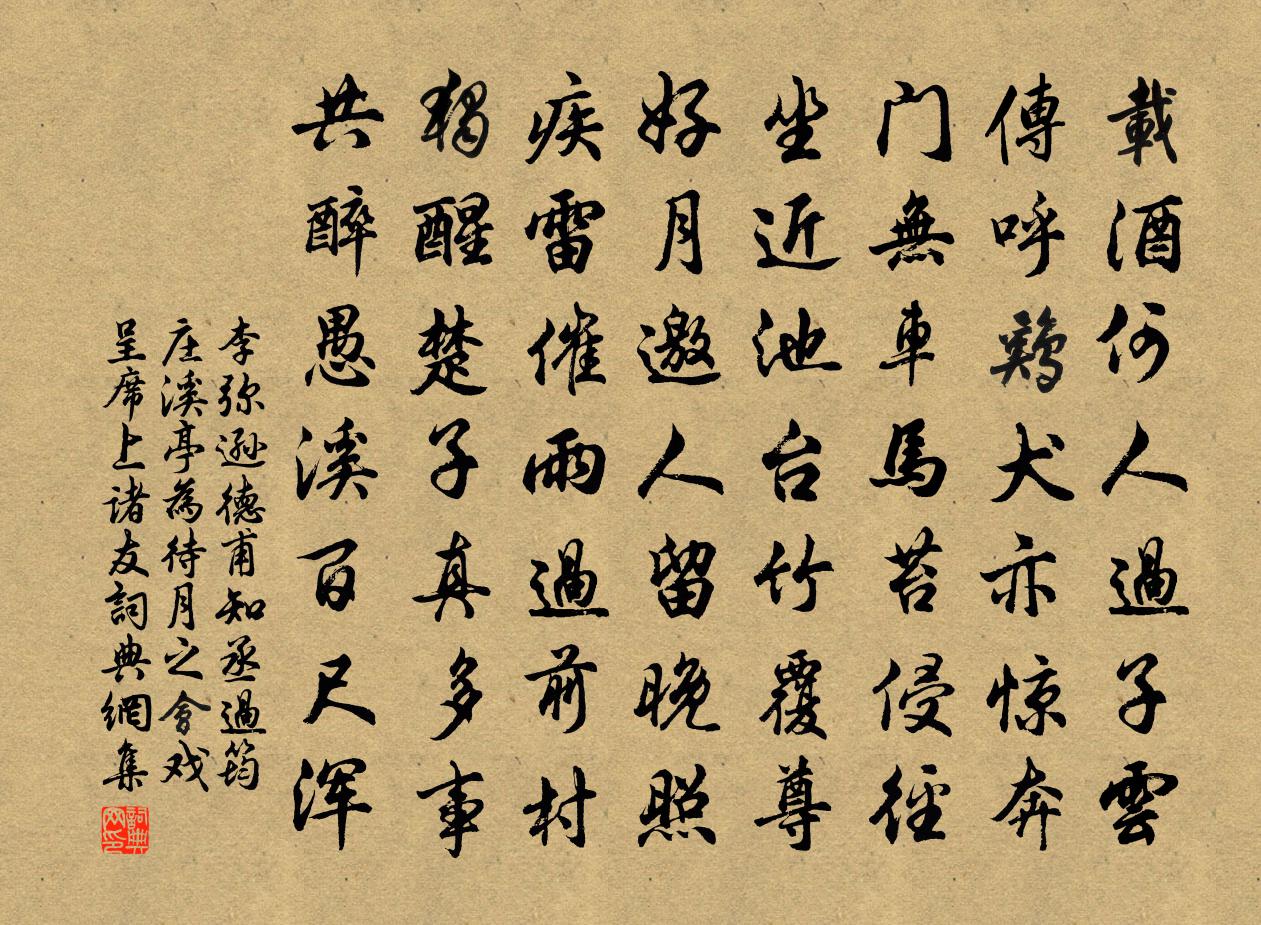 載酒何人過子雲
傳呼鷄犬亦惊奔
门無車馬苔侵徑
坐近池台竹覆尊
好月邀人留晚照
疾雷催雨過前村
獨醒楚子真多事
共醉愚溪百尺浑
李弥逊德甫知丞過筠
庄溪亭為待月之會戏
呈席上诸友詞典網集
詞典网印